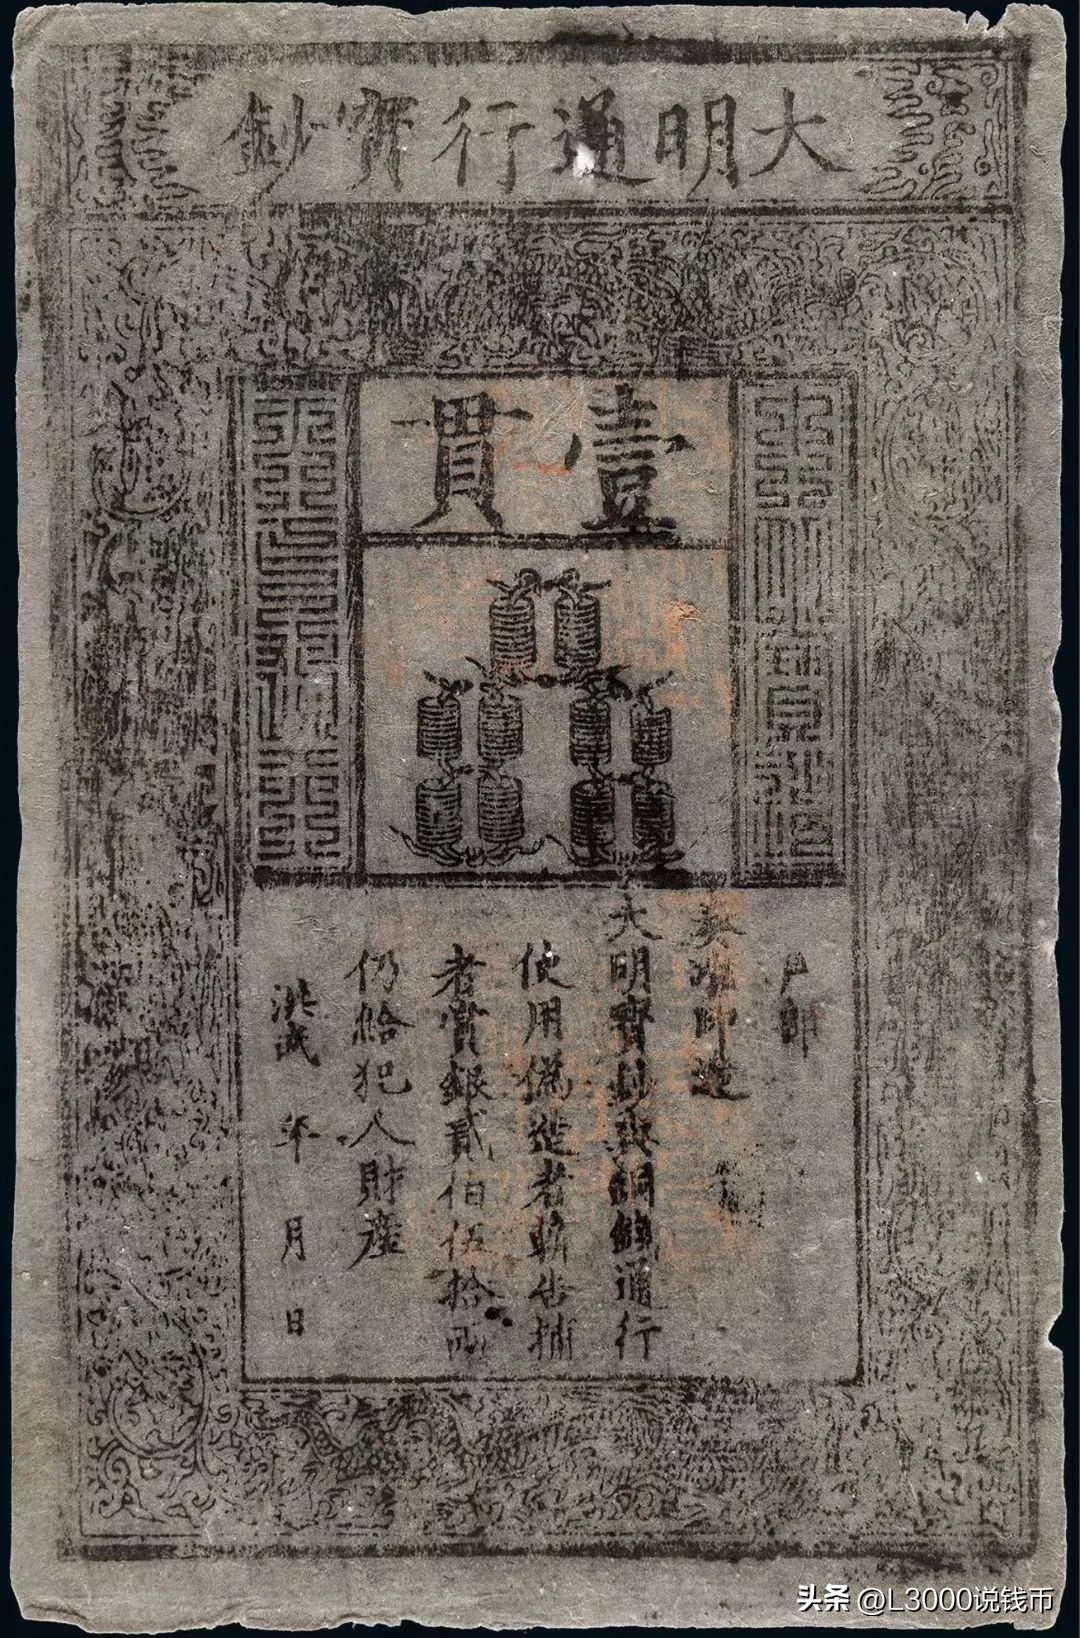 大明通行寶鈔
壹貫
戶部
奏准印造
大明寶鈔與銅錢通行
使用僞造者斬告捕
者賞銀貳伯伍拾兩
仍給犯人財產
洪武 年 月 日
头条 @L3000说钱币